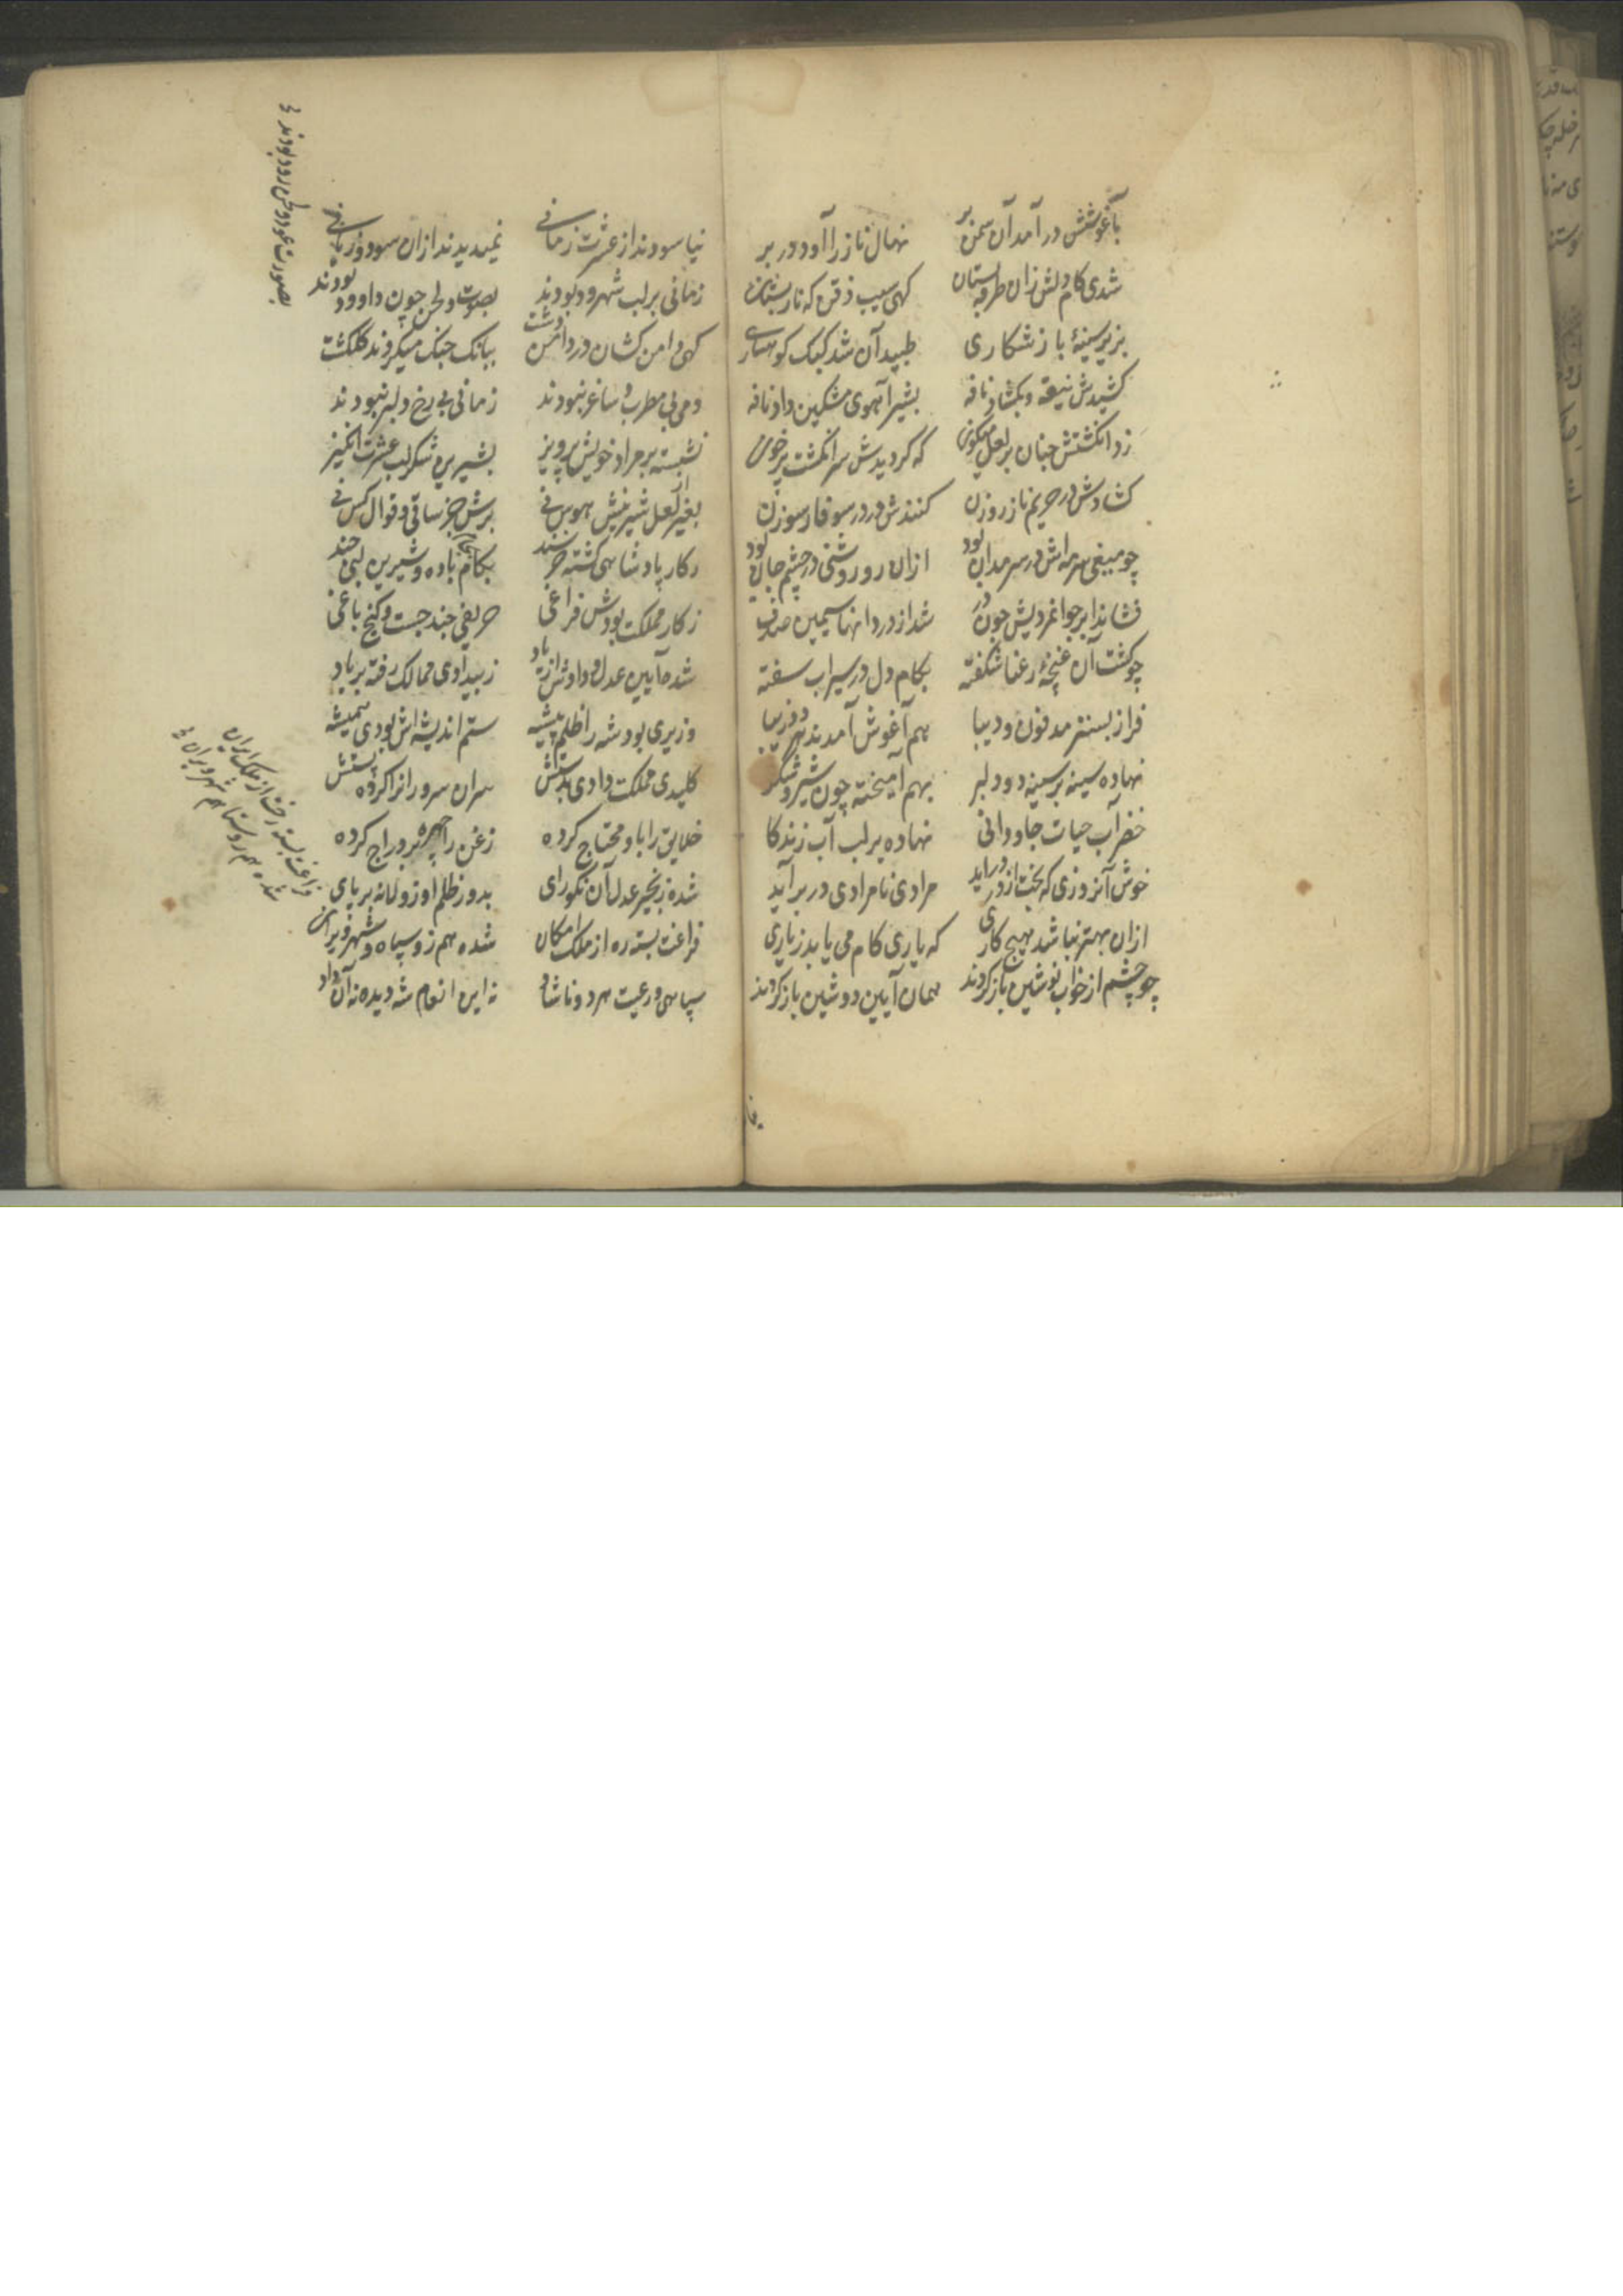 بآغوشش در آمد آن سمن بر نهال ناز را آورد در بر
شدی کام دلش زان طرفه بستان کهی سیب ذقن که نار پستان
بزیر سینهٔ باز شکاری طپید آن شد کبک کوهساری
کشیدش نیفه و بکشاد نافه بشیر آهوی مشکین داد نافه
زد انکشتش چنان بر لعل میکون که کردیدش سر انکشت پر خون
کشادش در حریم ناز روزن کنندش در در سوفار سوزن
چو میغی سرمه اش در سرمدان بود ازان رو روشنی در چشم جان بود
فشاند ابر جوانمردیش چون در شد از دردانها سیمین صدف
چو کشت آن غنچهٔ رعنا شکفته بکام دل در سیراب سفته
فراز بستر مدفون و دیبا بهم آغوش آمدند
نهاده سینه بر سینه دو دلبر بهم آمیخته چون شیر و شکر
خضر آب حیات جاودانی نهاده بر لب آب زندکا
خوش آنروزی که بخت از در در اید مرادی نامرادی در بر آید
ازان بهتر نباشد هیچ کاری که یاری کام می یابد زیاری
چو چشم از خواب نوشین باز کردند همان آیین دوشین باز کردند
نیاسودند از عشرت زمانی نمیدیدند ازان سود و زیانی
زمانی بر لب شهرود بودند بصوت و لحن چون داوود بودند
کهی دامن کشان در دامن دشت ببانک چنک میکردند کلکشت
دمی بی مطرب و ساغر نبودند زمانی بی رخ دلبر نبودند
نشسته بر مراد خویش پرویز بشیرین شکر لب عشرت انکیز
بغیر از لعل شیرینش هوس نی برش جز ساقی و قوال کس نی
ز کار پادشاهی کشته خرسند بکام باده و شیرین لبی چند
ز کار مملکت بودش فراغی حریفی چند جست و کنج باغی
شده آیین عدل و دادش از یاد ز بیدادی ممالک رفته بر باد
وزیری بود شه را ظلم پیشه ستم اندیشه اش بودی همیشه
کلیدی مملکت دادی بدستش سران سرور انرا کرده پستش
خلایق را باو محتاج کرده زغن را چهره بر دراج کرده
شده زنجیر عدل آن نکورای بدور ظلم او زولانه بر پای
فراغت بسته ره از ملک امکان شده هم زو سپاه و شهر ویران
سپاهی و رعیت هر دو ناشاد نه این انعام شه دیده نه آن داد
فراغت بسته رخت از ملک ایران
شده هم روستا هم شهر ویران